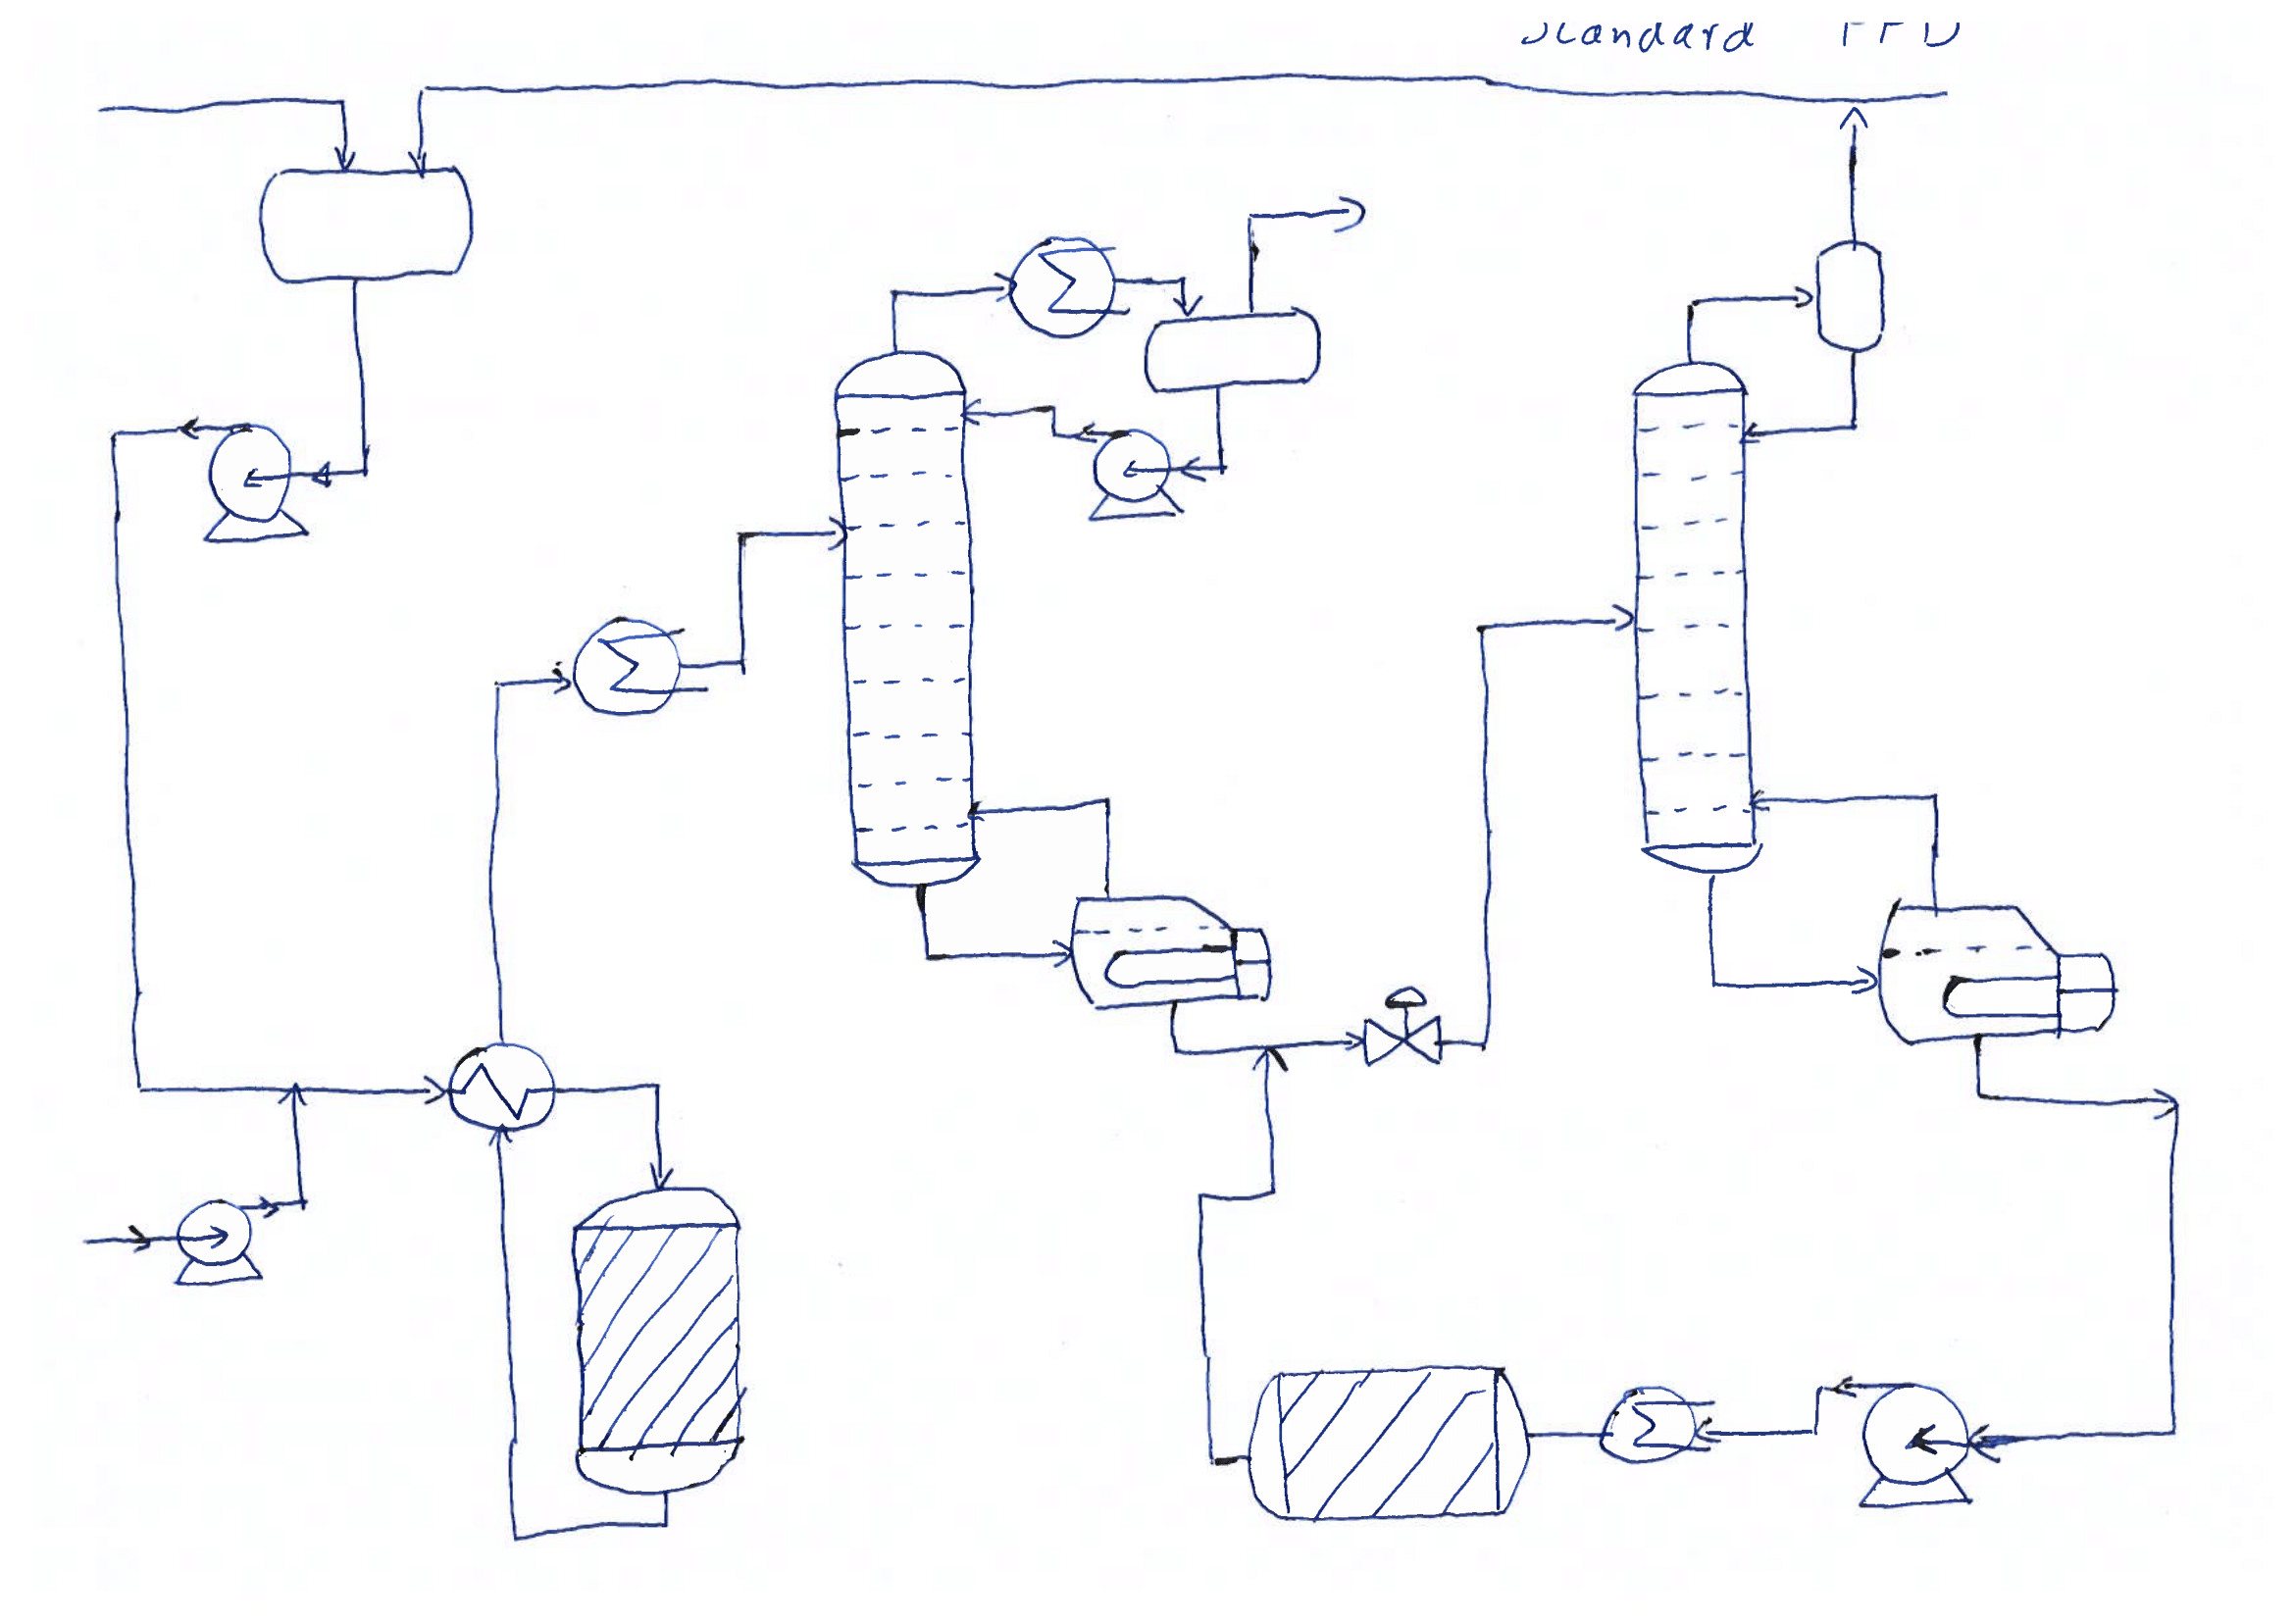 Standard PFD